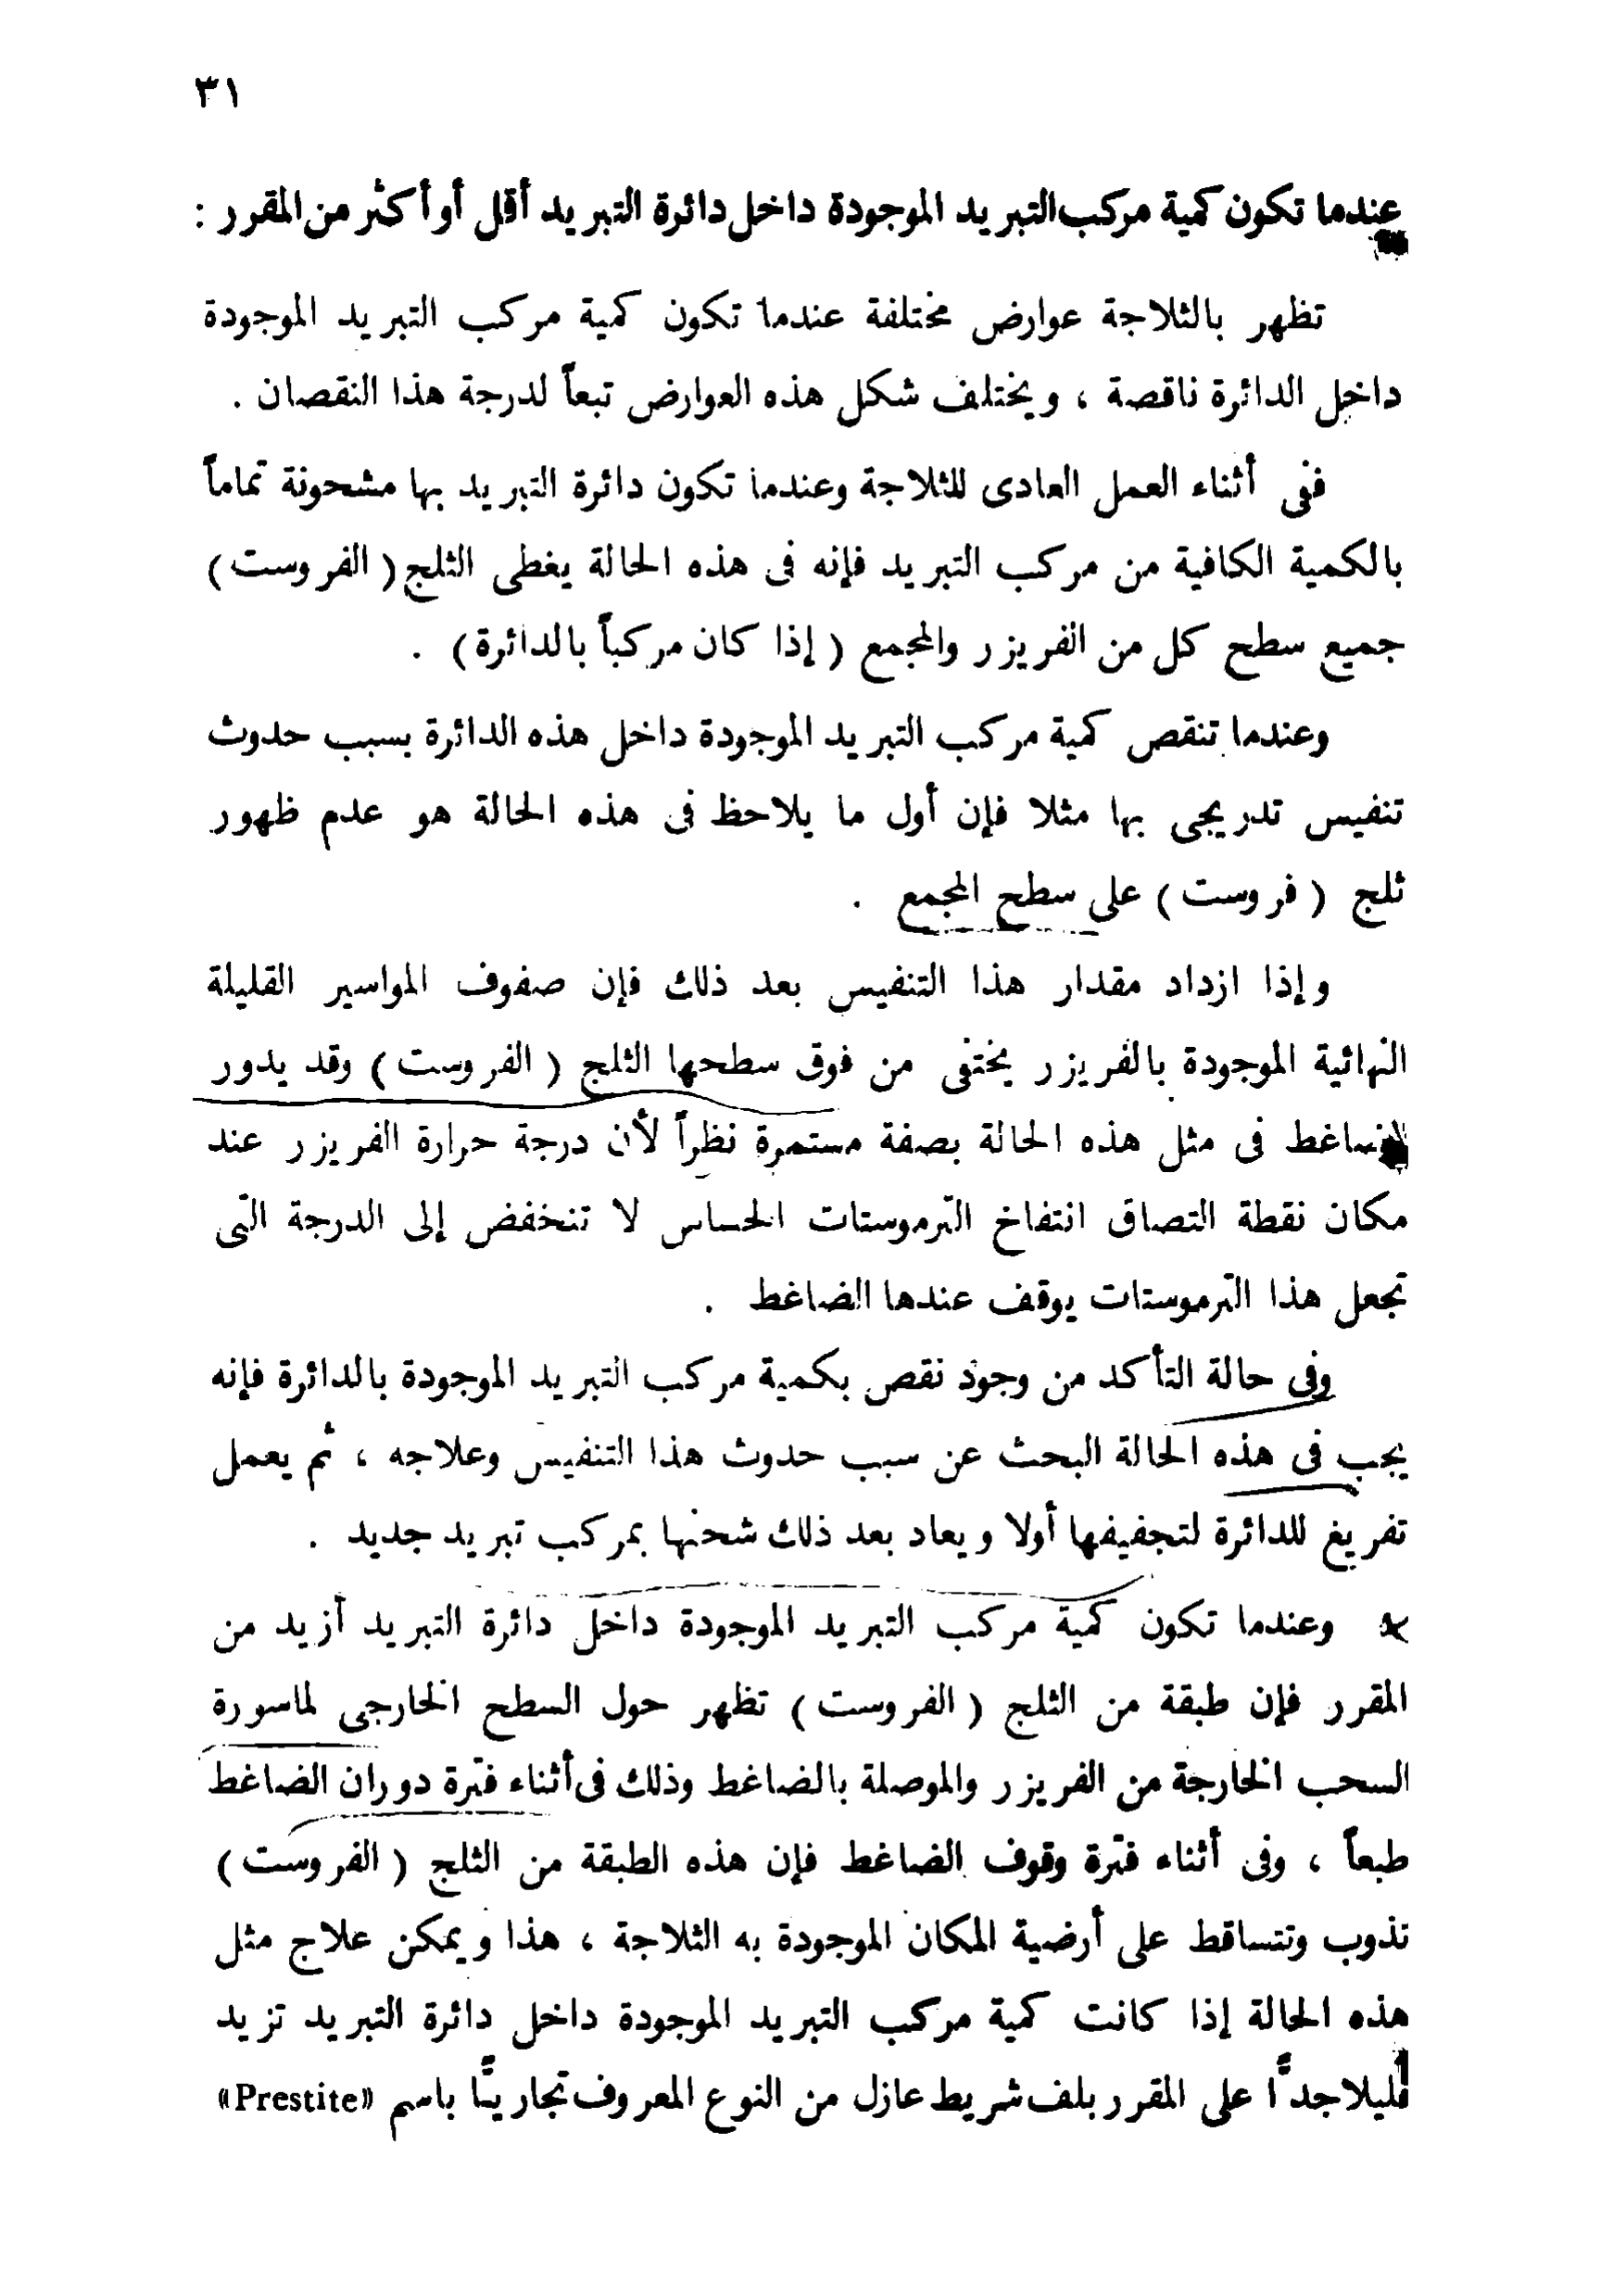 ٣١
عندما تكون كمية مركب التبريد الموجودة داخل دائرة التبريد أقل أو أكثر من المقرر :
تظهر بالثلاجة عوارض مختلفة عندما تكون كمية مركب التبريد الموجودة
داخل الدائرة ناقصة ، ويختلف شكل هذه العوارض تبعاً لدرجة هذا النقصان .
ففى أثناء العمل العادى للثلاجة وعندما تكون دائرة التبريد بها مشحونة تماماً
بالكمية الكافية من مركب التبريد فإنه فى هذه الحالة يغطى الثلج ( الفروست )
جميع سطح كل من الفريزر والمجمع ( إذا كان مركباً بالدائرة ) .
وعندما تنقص كمية مركب التبريد الموجودة داخل هذه الدائرة بسبب حدوث
تنفيس تدريجى بها مثلا فإن أول ما يلاحظ فى هذه الحالة هو عدم ظهور
ثلج ( فروست ) على سطح المجمع .
وإذا ازداد مقدار هذا التنفيس بعد ذلك فإن صفوف المواسير القليلة
النهائية الموجودة بالفريزر يختفى من فوق سطحها الثلج ( الفروست ) وقد يدور
الضاغط فى مثل هذه الحالة بصفة مستمرة نظراً لأن درجة حرارة الفريزر عند
مكان نقطة التصاق انتفاخ الترموستات الحساس لا تنخفض إلى الدرجة التى
تجعل هذا الترموستات يوقف عندها الضاغط .
وفى حالة التأكد من وجود نقص بكمية مركب التبريد الموجودة بالدائرة فإنه
يجب فى هذه الحالة البحث عن سبب حدوث هذا التنفيس وعلاجه ، ثم يعمل
تفريغ للدائرة لتجفيفها أولا ويعاد بعد ذلك شحنها بمركب تبريد جديد .
وعندما تكون كمية مركب التبريد الموجودة داخل دائرة التبريد أزيد من
المقرر فإن طبقة من الثلج ( الفروست ) تظهر حول السطح الخارجى لماسورة
السحب الخارجة من الفريزر والموصلة بالضاغط وذلك فى أثناء فترة دوران الضاغط
طبعاً ، وفى أثناء فترة وقوف الضاغط فإن هذه الطبقة من الثلج ( الفروست )
تذوب وتتساقط على أرضية المكان الموجودة به الثلاجة ، هذا ويمكن علاج مثل
هذه الحالة إذا كانت كمية مركب التبريد الموجودة داخل دائرة التبريد تزيد
قليلا جدًّا على المقرر بلف شريط عازل من النوع المعروف تجاريًّا باسم «Prestite»